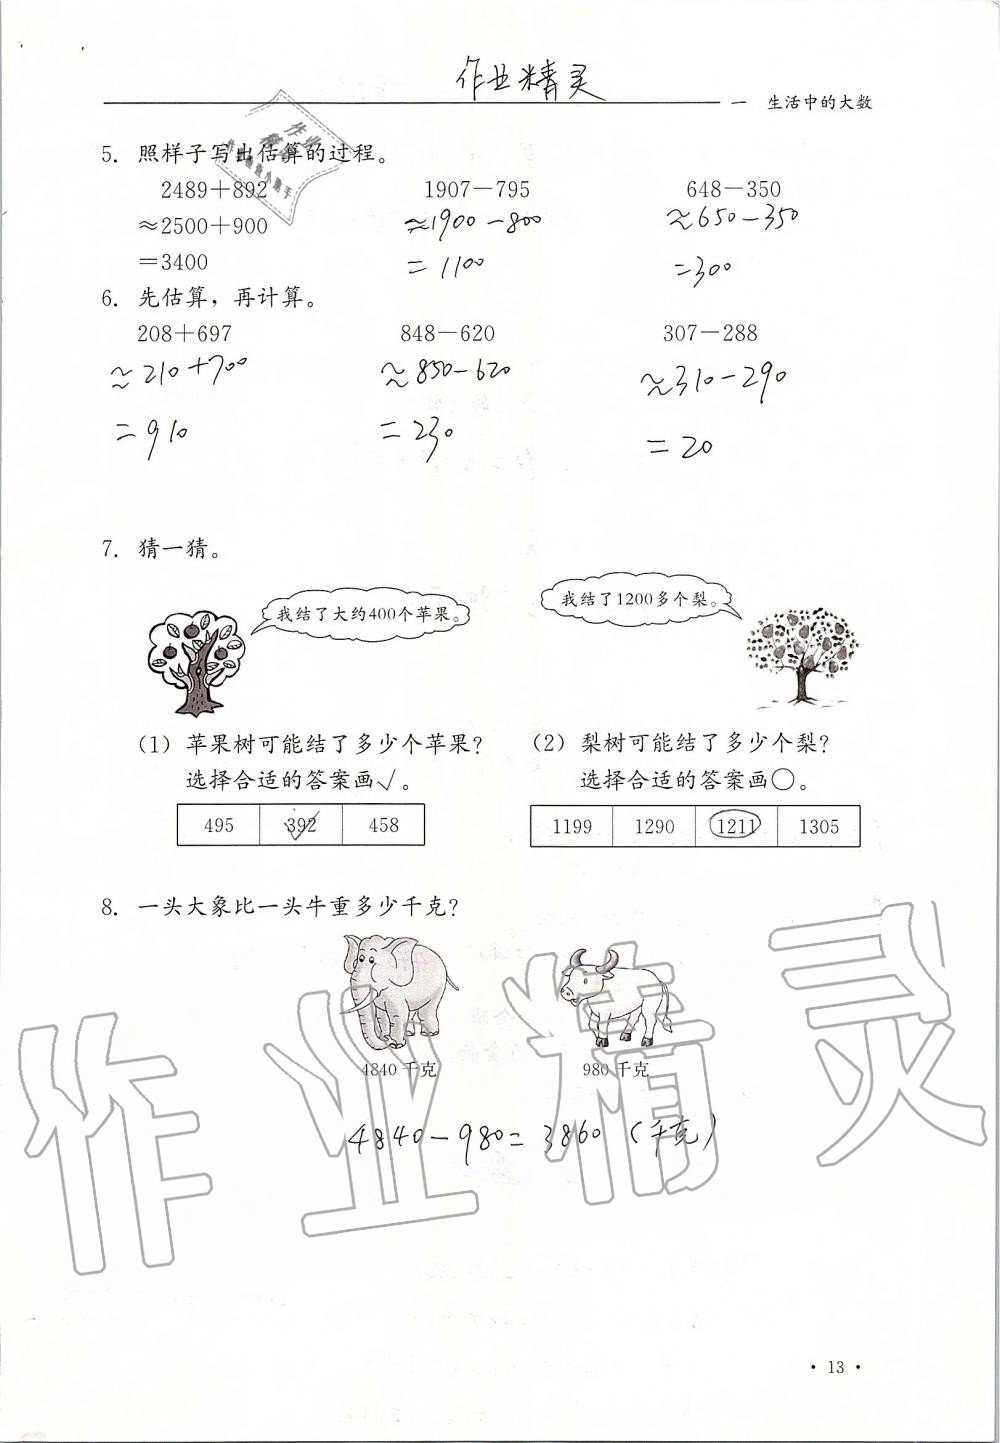 作业精灵
一 生活中的大数
5. 照样子写出估算的过程。
2489+892 1907-795 648-350
≈2500+900 ≈1900-800 ≈650-350
=3400 =1100 =300
6. 先估算，再计算。
208+697 848-620 307-288
≈210+700 ≈850-620 ≈310-290
=910 =230 =20
7. 猜一猜。
我结了大约400个苹果。 我结了1200多个梨。
(1) 苹果树可能结了多少个苹果? (2) 梨树可能结了多少个梨?
选择合适的答案画√。 选择合适的答案画○。
495 392 458 1199 1290 1211 1305
8. 一头大象比一头牛重多少千克?
4840千克 980千克
4840-980=3860（千克）
作业精灵
·13·